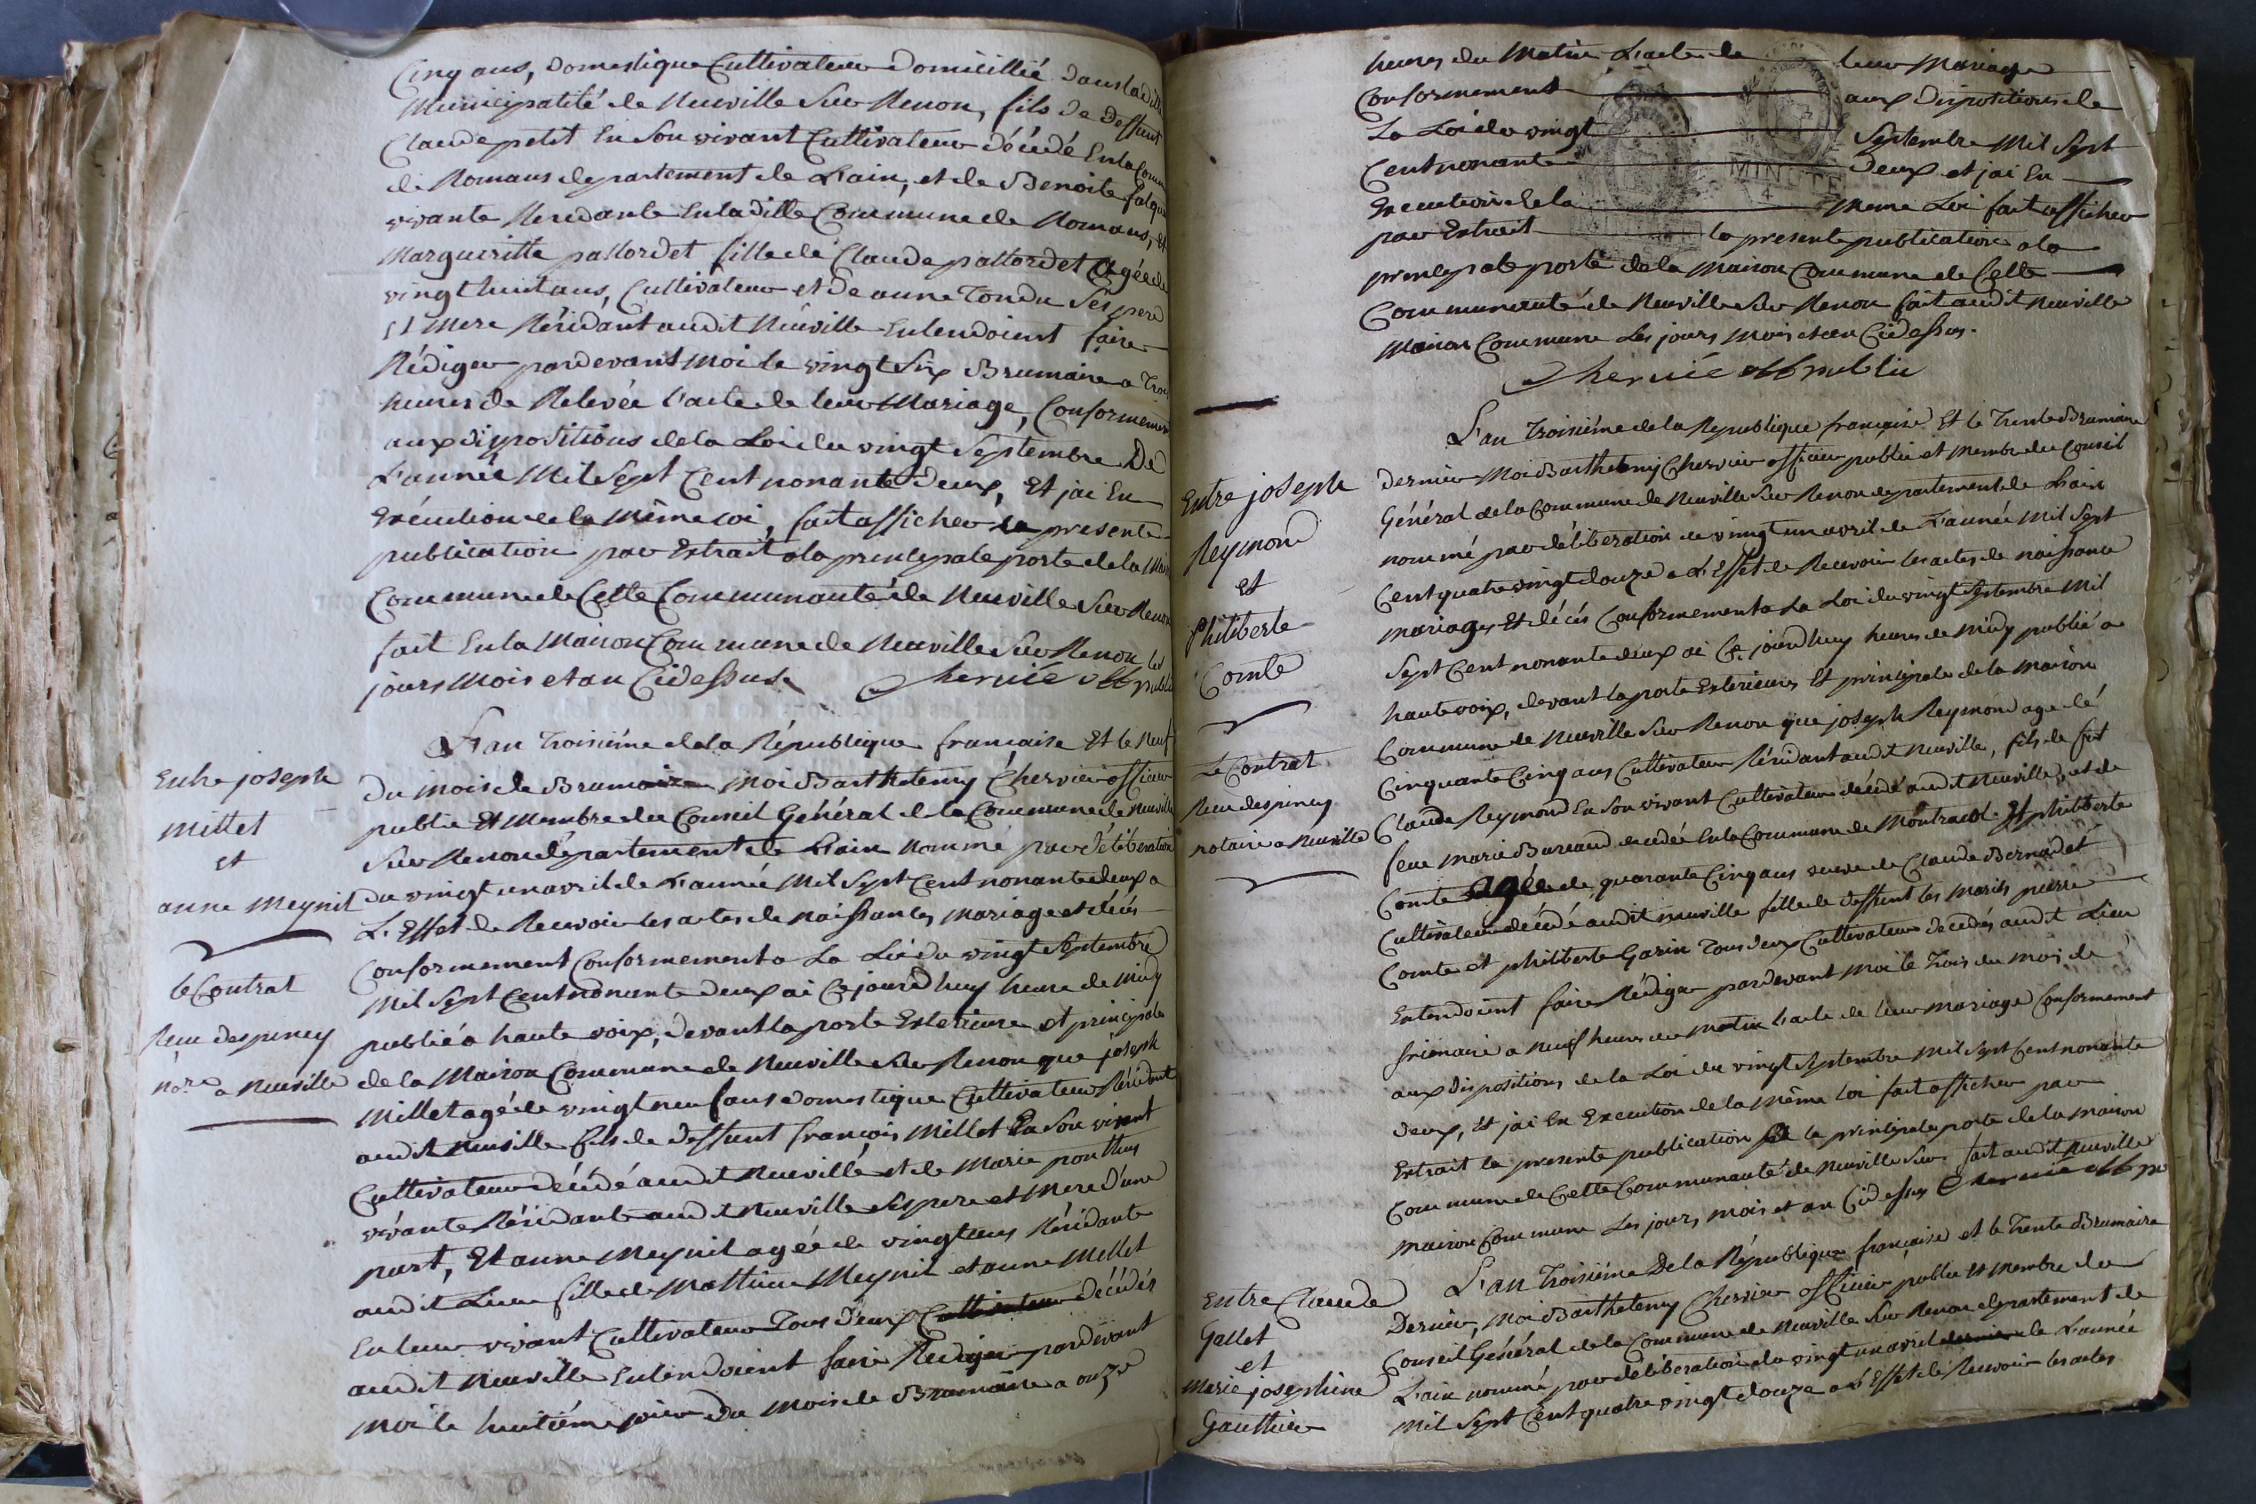 Cinq ans, domestique Cultivateur domicillié dans la ditte
Municipalité de Neuville Sur Renon, fils de deffunt
Claude petit En Son vivant Cultivateur décédé En la Comm
de Romans departement de L'ain, et de Benoite
vivante Résidante En la ditte Commune de Romans, et
Margueritte pallordet fille de Claude pallordet Agée de
vingt huit ans, Cultivateur et de anne Tondu Ses pere
et Mere Résidant audit Neuville Entendoient faire
Rédiger pardevant moi le vingt Six Brumaire a Trois
heures de Relevée l'acte de leur Mariage, Conformement
aux dispositions de la Loi du vingt Septembre De
L'année Mil Sept Cent nonante deux, Et jai En
Exécution de la Même Loi, fait afficher la presente
publication par Extrait a la principale porte de la Mais
Commune de Cette Communauté de Neuville Sur Renon
fait En la Maison Commune de Neuville Sur Renon les
jours Mois et an Cidessus. Chervié off public
Entre joseph
Millet
et
anne Meynit
le Contrat
Reçu despiney
no.re a Neuville
L'an Troisiéme de la République francaise Et le Neuf
Du mois de Brumaire Moi Barthelemy Chervier officier
public Et Membre du Conseil Général de la Commune de Neuville
Sur Renon département de L'ain nommé par délibération
du vingt un avril de L'année Mil Sept Cent nonante deux a
L'Effet de Recevoir les actes de Naissances, Mariage et décés
Conformement Conformement a La Loi du vingt Septembre
Mil Sept Cent nonante deux ai Ce jourd'huy heure de midy
publié a haute voix, devant la porte Exterieure et principale
de la Maison Commune de Neuville Sur Renon que joseph
Millet agé de vingt neuf ans domestique Cultivateur Résidant
audit Neuville fils de deffunt françois Millet En Son vivant
Cultivateur décédé audit Neuville et de Marie ponthus
vivante Résidante audit Neuville Ses pere et Mere d'une
part, Et anne Meynit agée de vingt ans Résidante
audit Lieu fille de Mathieu Meynit et anne Millet
En leur vivant Cultivateur Tous deux Cultivateur décédés
audit Neuville Entendoient faire Rediger pardevant
Moi le huitiéme jour du Mois de Brumaire a onze
heures du Matin L'acte de leur Mariage
Conformement aux dispositions de
La Loi du vingt Septembre Mil Sept
Cent nonante deux et jai En
Execution de la Meme Loi fait afficher
par Extrait la presente publication a la
principale porte de la Maison Commune de Cette
Communauté de Neuville Sur Renon fait audit Neuville
Maison Commune Les jours Mois et an Cidessus.
MINUTE
4
Chervié off public
Entre joseph
Reymond
et
Philiberte
Comte
Le Contrat
Reçu despiney
notaire a Neuville
L'an Troisiéme de la Republique française Et le Trente Brumaire
dernier Moi Barthelemy Chervier officier public et membre du Conseil
Général de la Commune de Neuville Sur Renon departement de L'ain
nommé par délibération du vingt un avril de L'année Mil Sept
Cent quatre vingt douze a L'Effet de Recevoir les actes de naissance
mariages Et décés Conformement a La Loi du vingt Septembre Mil
Sept Cent nonante deux ai Ce jourdhuy heures de midy publié a
haute voix, devant la porte Exterieures Et principale de la maison
Commune de Neuville Sur Renon que joseph Reymond age de
Cinquante Cinq ans Cultivateur Résidant audit Neuville, fils de fut
Claude Reymond En Son vivant Cultivateur décédé audit Neuville, et de
feue Marie Bureaud decedée En la Commune de Montracol. Et philiberte
Comte agée de quarante Cinq ans veuve de Claude Bernadet
Cultivateur décédé audit neuville fille de deffunt les mariés pierre
Comte et philiberte Garin Tous deux Cultivateur decedés audit Lieu
Entendoient faire Rédiger pardevant moi le Trois du mois de
frimaire a neuf heures du matin L'acte de leur mariage Conformement
aux dispositions de la Loi du vingt Septembre Mil Sept Cent nonante
deux, Et jai En Execution de la même Loi fait afficher par
Extrait la presente publication a la principale porte de la maison
Commune de Cette Communauté de Neuville Sur. fait audit Neuville
maison Commune Les jours, mois et an Cidessus Chervié off pu
Entre Claude
Gallet
et
Marie josephine
Gauthier
L'an Troisiéme De la République française et le Trente Brumaire
Dernier, Moi Barthelemy Chervier officier public et Membre du
Conseil Général de la Commune de Neuville Sur Renon departement de
L'ain nommé par délibération du vingt un avril dernier de L'année
Mil Sept Cent quatre vingt douze a L'Effet de Recevoir les actes